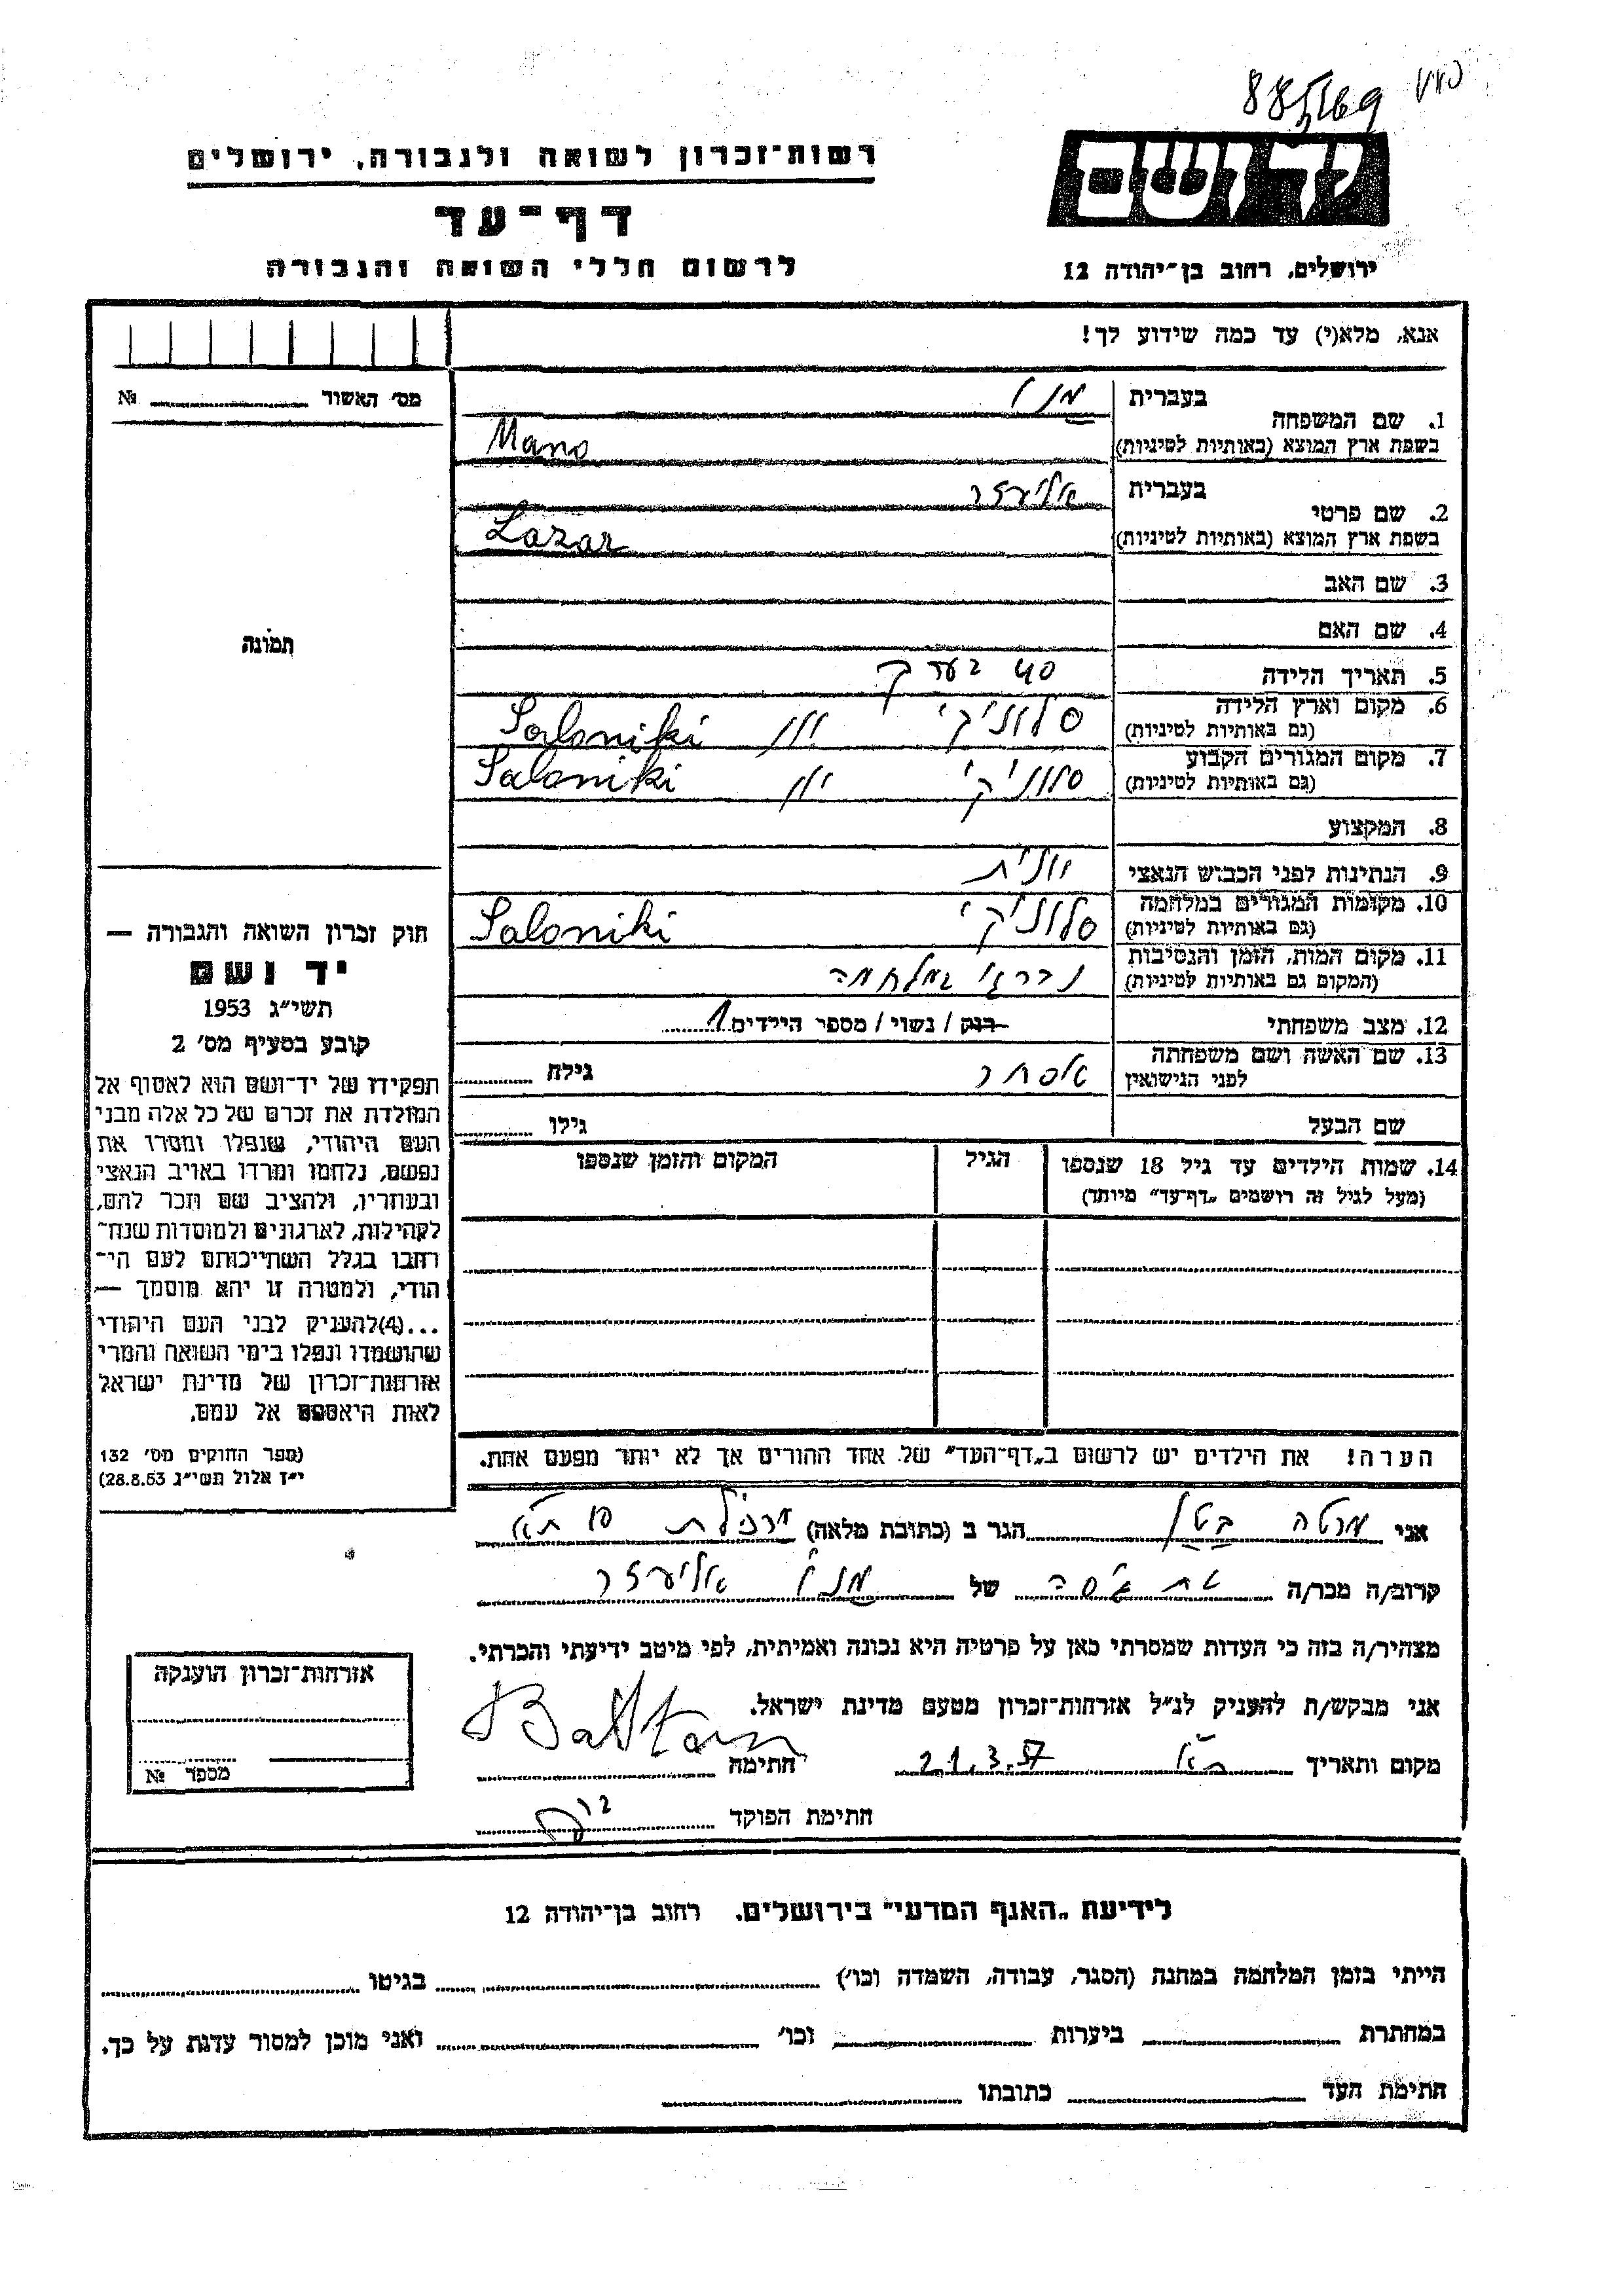 885169
יד ושם
רשות־זכרון לשואה ולגבורה, ירושלים
דף־עד
לרשום חללי השואה והגבורה
ירושלים, רחוב בן־יהודה 12
אנא, מלא(י) עד כמה שידוע לך!
מס׳ האשור № 
1. שם המשפחה
בעברית מנו
בשפת ארץ המוצא (באותיות לטיניות) Mano
2. שם פרטי
בעברית אליעזר
בשפת ארץ המוצא (באותיות לטיניות) Lazar
3. שם האב
4. שם האם
תמונה
5. תאריך הלידה 40 בערך
6. מקום וארץ הלידה סלוניקי יון Saloniki
(גם באותיות לטיניות)
7. מקום המגורים הקבוע סלוניקי יון Saloniki
(גם באותיות לטיניות)
8. המקצוע
9. הנתינות לפני הכבוש הנאצי יונית
10. מקומות המגורים במלחמה סלוניקי Saloniki
(גם באותיות לטיניות)
11. מקום המות, הזמן והנסיבות
(המקום גם באותיות לטיניות) במלחמה
12. מצב משפחתי רוק / נשוי / מספר הילדים 1
13. שם האשה ושם משפחתה
לפני הנישואין אסתר גילה
שם הבעל גילו
14. שמות הילדים עד גיל 18 שנספו הגיל המקום והזמן שנספו
(מעל לגיל זה רושמים „דף־עד” מיוחד)
הערה! את הילדים יש לרשום ב„דף־העד” של אחד ההורים אך לא יותר מפעם אחת.
חוק זכרון השואה והגבורה —
יד ושם
תשי״ג 1953
קובע בסעיף מס׳ 2
תפקידו של יד־ושם הוא לאסוף אל
המולדת את זכרם של כל אלה מבני
העם היהודי, שנפלו ומסרו את
נפשם, נלחמו ומרדו באויב הנאצי
ובעוזריו, ולהציב שם וזכר להם,
לקהילות, לארגונים ולמוסדות שנח־
רבו בגלל השתייכותם לעם הי־
הודי, ולמטרה זו יהא מוסמך —
...(4)להעניק לבני העם היהודי
שהושמדו ונפלו בימי השואה והמרי
אזרחות־זכרון של מדינת ישראל
לאות היאספם אל עמם.
(ספר החוקים מס׳ 132
י״ז אלול תשי״ג 28.8.53)
אני מרטה בטן הגר ב (כתובת מלאה)
קרוב/ה מכר/ה של מנו אליעזר
מצהיר/ה בזה כי העדות שמסרתי כאן על פרטיה היא נכונה ואמיתית, לפי מיטב ידיעתי והכרתי.
אני מבקש/ת להעניק לנ״ל אזרחות־זכרון מטעם מדינת ישראל.
מקום ותאריך 21.3.57 חתימה Battan
חתימת הפוקד
אזרחות־זכרון הוענקה
מספר №
לידיעת „האגף המדעי” בירושלים, רחוב בן־יהודה 12
הייתי בזמן המלחמה במחנה (הסגר, עבודה, השמדה וכו׳) בגיטו
במחתרת ביערות וכו׳ ואני מוכן למסור עדות על כך.
חתימת העד כתובתו